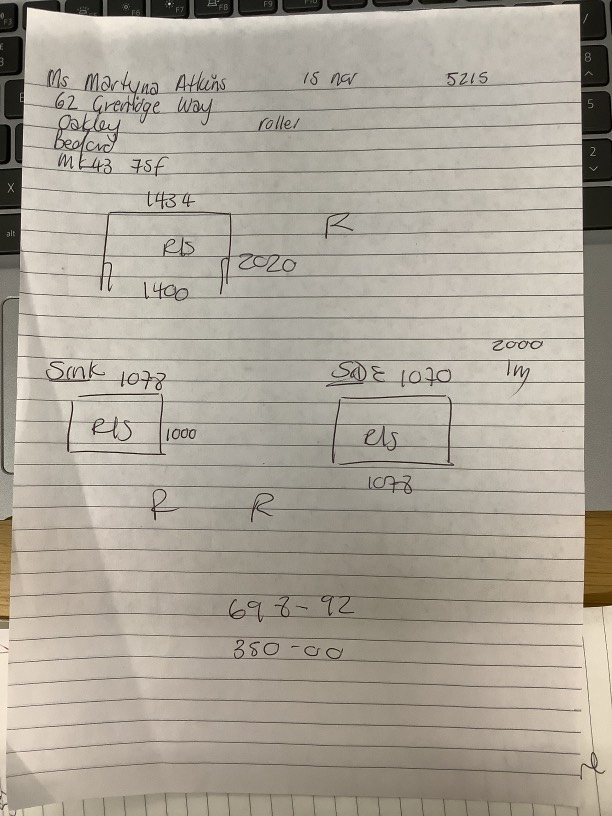 Ms Martyna Atkins 15 nov 5215
62 Grentidge Way
Oakley roller
Bedford
MK43 7SF
1434
R
R/S
2020
1400
2000
Sink 1078 SIDE 1070 1m
R/S 1000 R/S
1078
R R
698-92
350-00